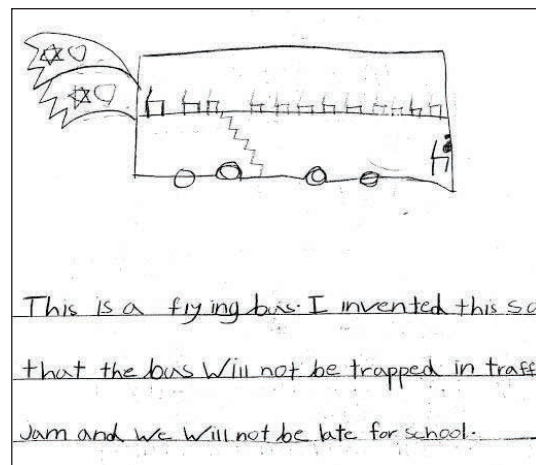 This is a flying bus. I invented this so
that the bus Will not be trapped in traff
Jam and we Will not be late for school.